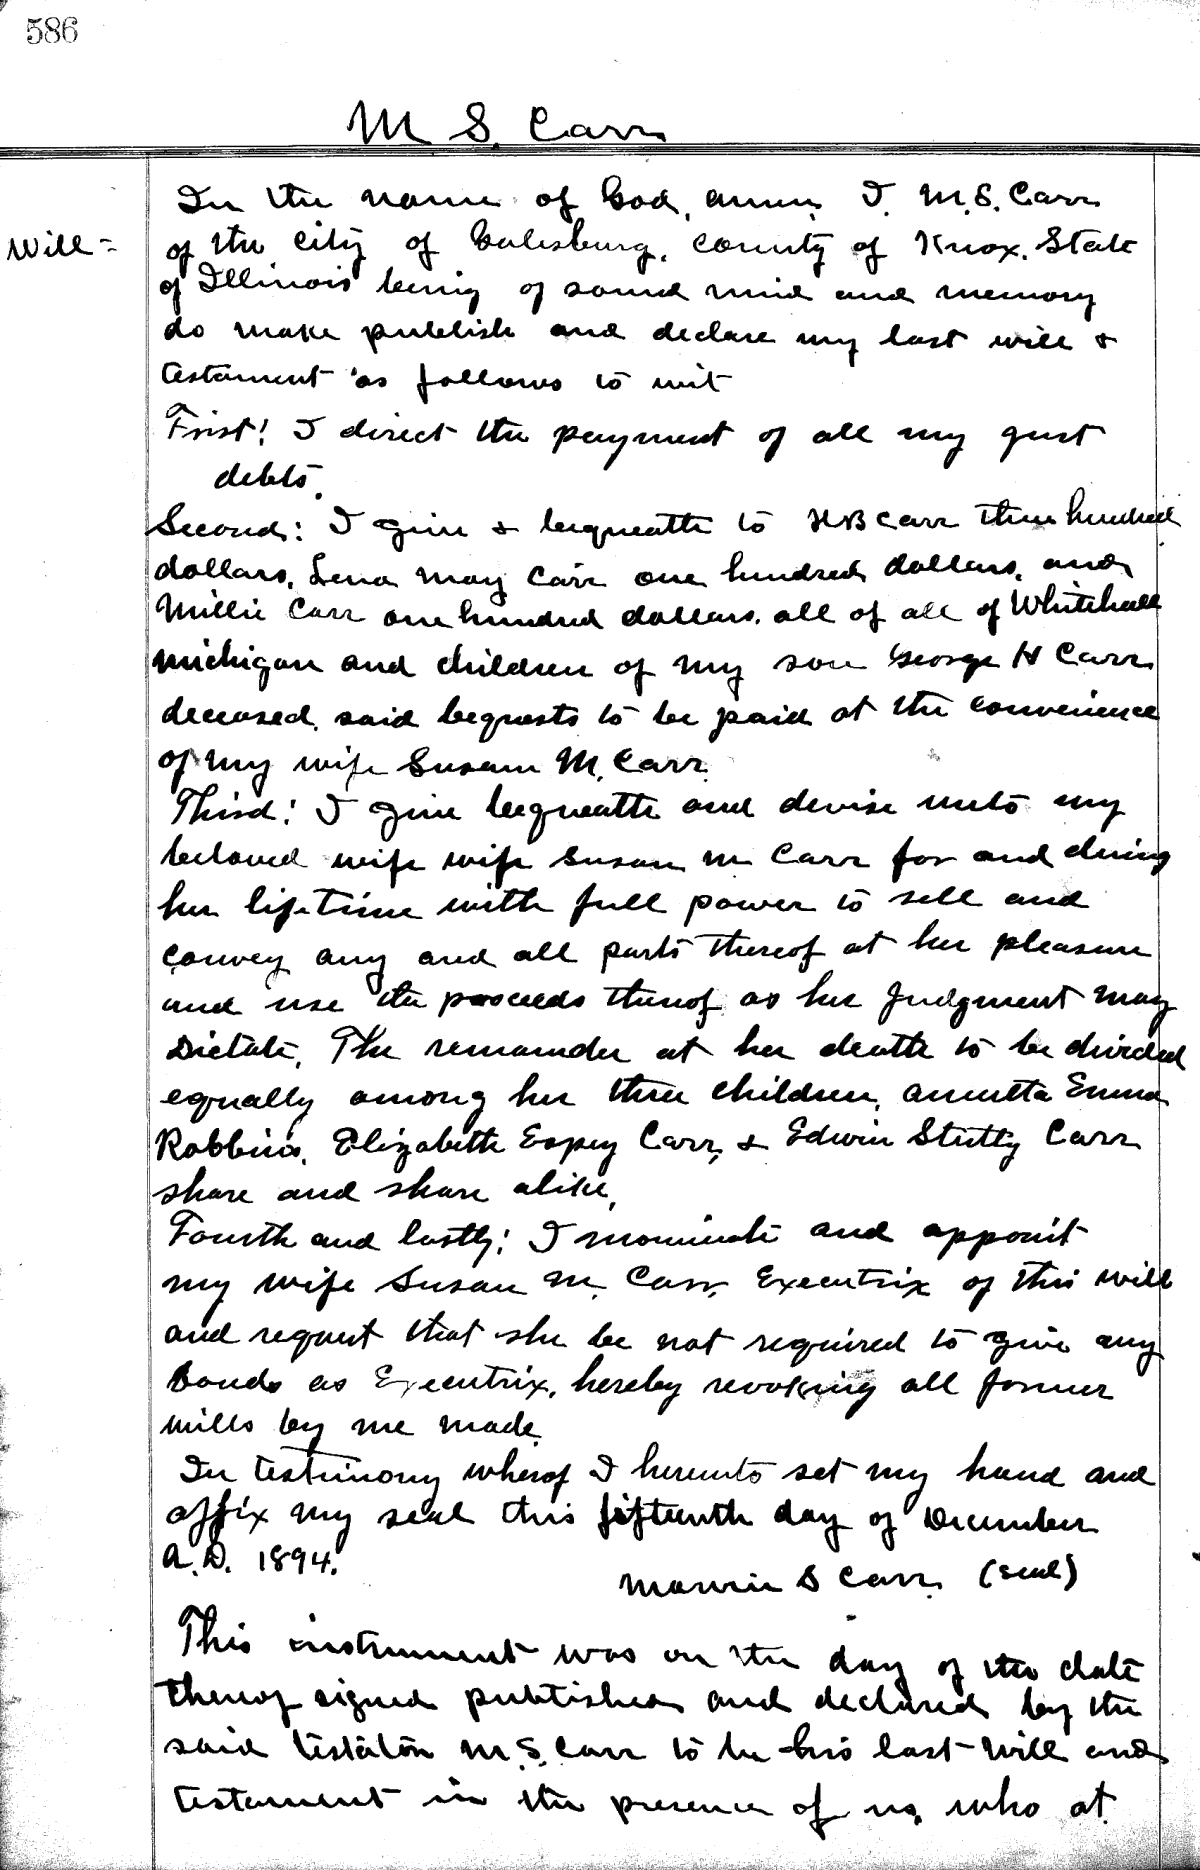 586
M S. Carr
Will =
In the name of God, amen, I, M.S. Carr
of the city of Galesburg, county of Knox, State
of Illinois being of sound mind and memory
do make publish and declare my last will &
testament as follows to wit
First! I direct the payment of all my just
debts.
Second: I give & bequeath to H B Carr three hundred
dollars, Lena May Carr one hundred dollars, and
Millie Carr one hundred dollars. all of all of Whitehall
Michigan and children of my son George H Carr
deceased, said bequests to be paid at the convenience
of my wife Susan M. Carr.
Third! I give bequeath and devise unto my
beloved wife wife Susan M Carr for and during
her lifetime with full power to sell and
convey any and all parts thereof at her pleasure
and use the proceeds thereof as her Judgment may
Dictate. The remainder at her death to be divided
equally among her three children, Annetta Emma
Robbins, Elizabeth Espey Carr, & Edwin Carr
share and share alike,
Fourth and lastly; I nominate and appoint
my wife Susan M. Carr, Executrix of this will
and request that she be not required to give any
bonds as Executrix, hereby revoking all former
wills by me made.
In testimony whereof I hereunto set my hand and
affix my seal this fifteenth day of December
A.D. 1894.
S Carr. (seal)
This instrument was on the day of the date
thereof signed published and declared by the
said testator M. S. Carr to be his last will and
testament in the presence of us, who at